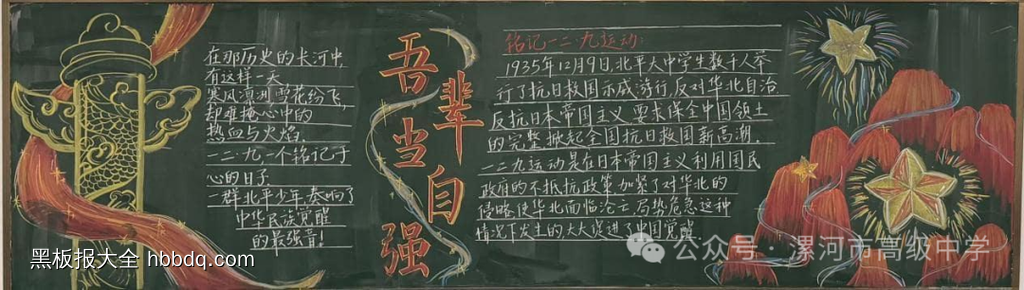 在那历史的长河中
有这样一天
寒风凛冽雪花纷飞,
却难掩心中的
热血与火焰
一二·九一个铭记于
心的日子
一群北平少年奏响了
中华民族觉醒
的最强音!
吾辈当自强
铭记一二·九运动:
1935年12月9日,北平大中学生数千人举
行了抗日救国示威游行反对华北自治
反抗日本帝国主义要求保全中国领土
的完整掀起全国抗日救国新高潮.
一二九运动是在日本帝国主义利用国民
政府的不抵抗政策加紧了对华北的
侵略使华北面临沦亡局势危急这种
情况下发生的大大促进了中国觉醒
黑板报大全 hbbdq.com
公众号·漯河市高级中学